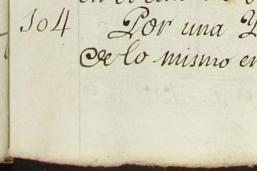 104 Por una
de lo mismo en